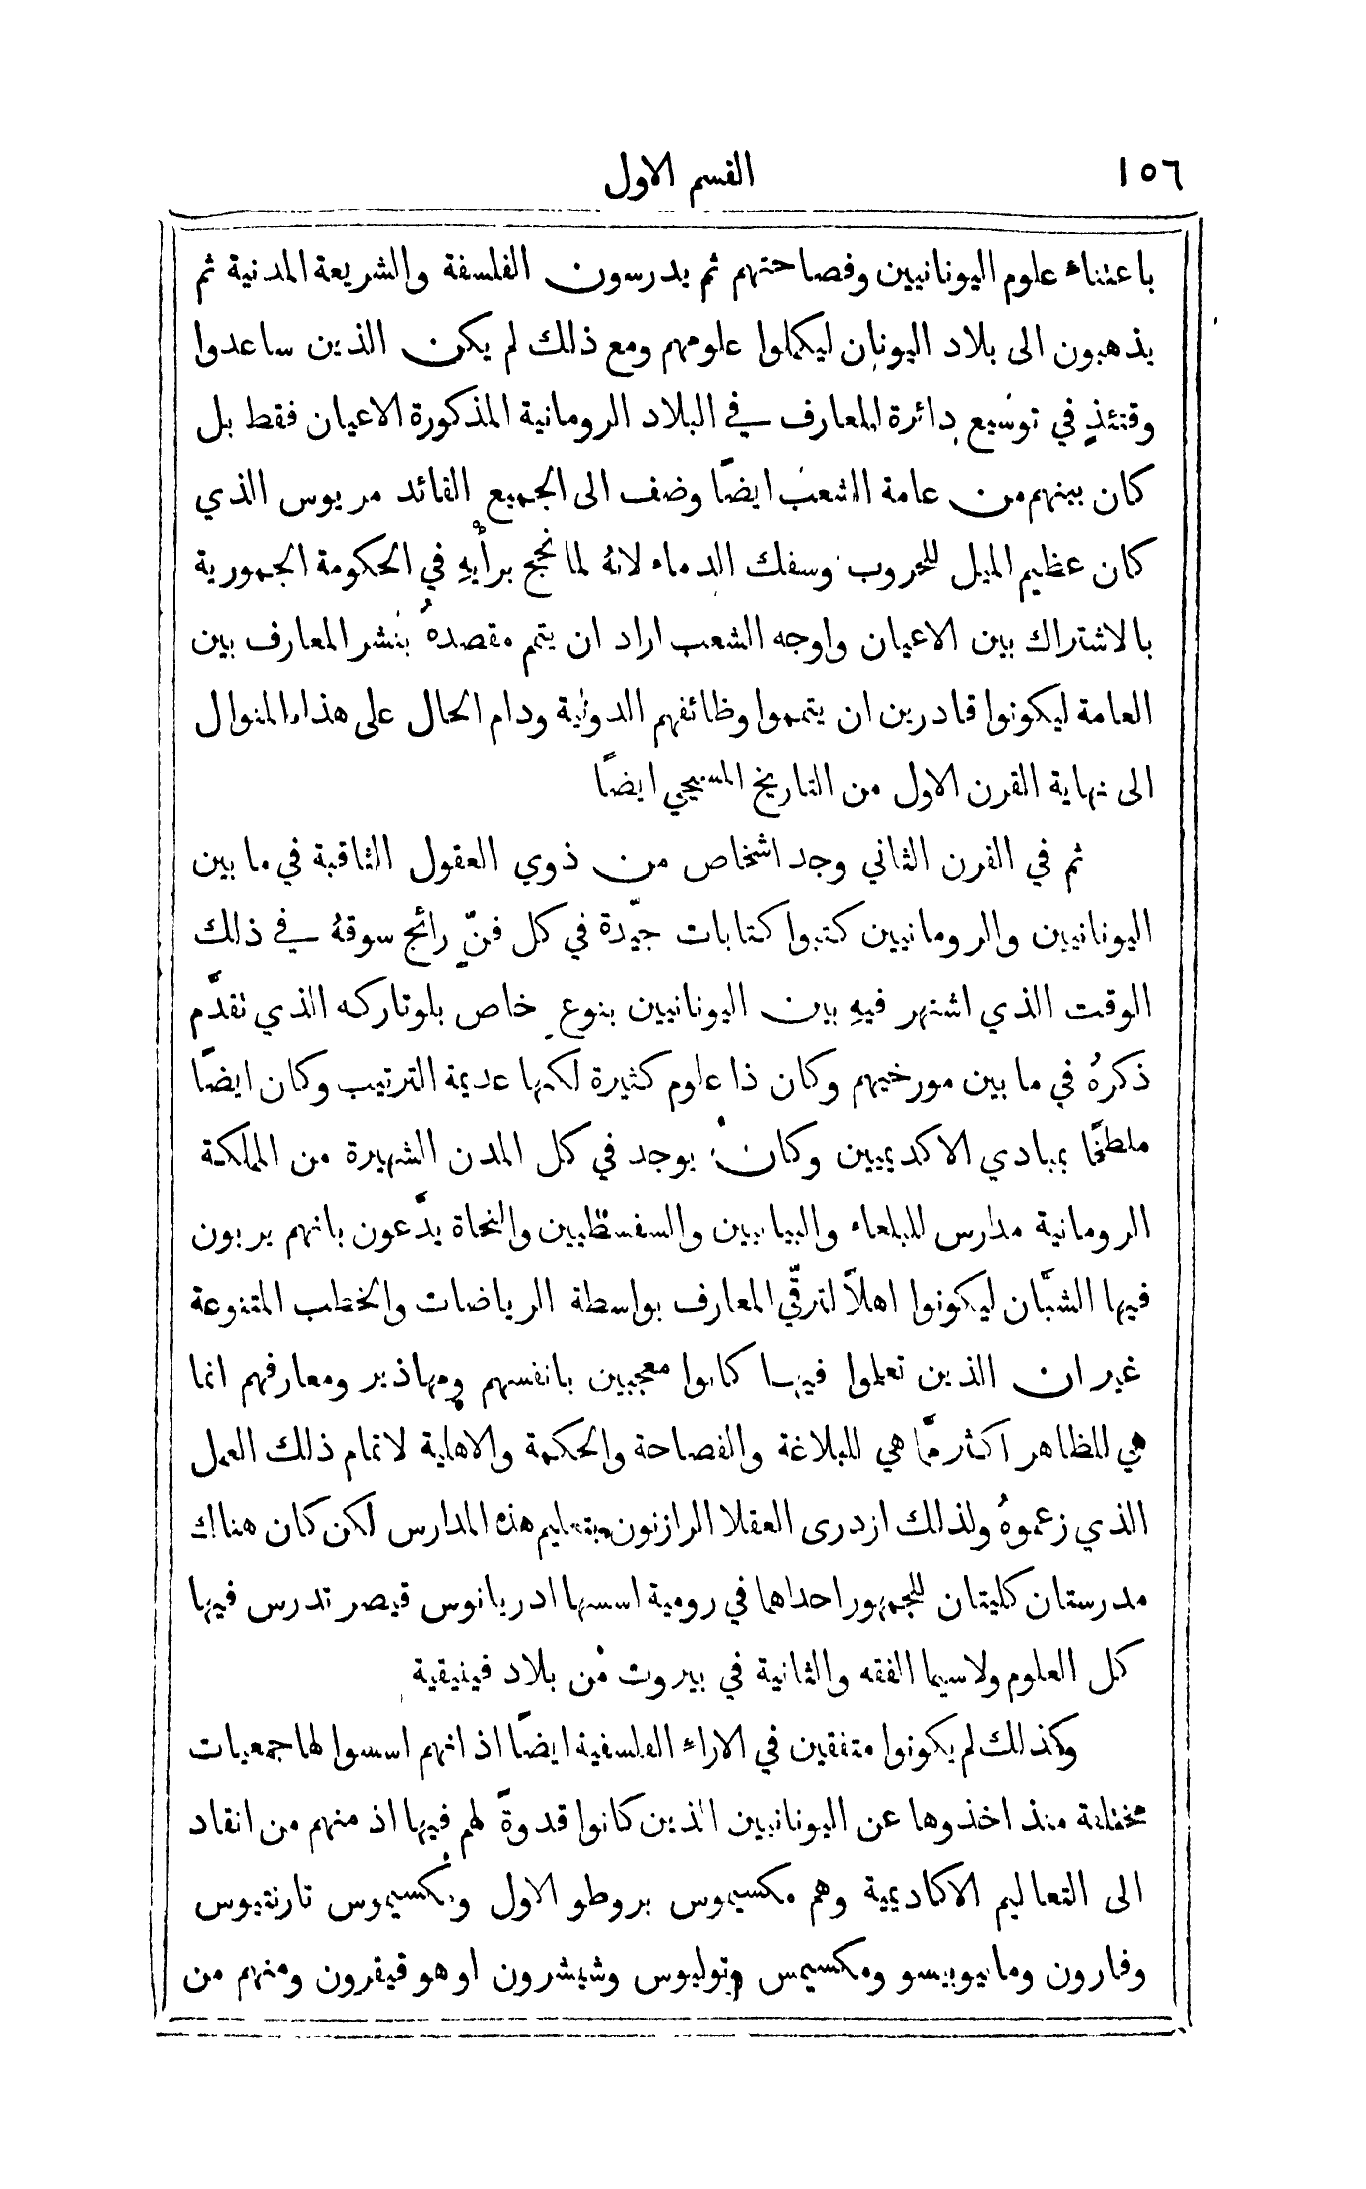 ١٥٦
القسم الاول
باعتناء علوم اليونانيين وفصاحتهم ثم يدرسون الفلسفة والشريعة المدنية ثم
يذهبون الى بلاد اليونان ليكملوا علومهم ومع ذلك لم يكن الذين ساعدوا
وقتئذٍ في توسيع دائرة المعارف في البلاد الرومانية المذكورة الاعيان فقط بل
كان بينهم من عامة الشعب ايضًا وضف الى الجميع القائد مريوس الذي
كان عظيم الميل للحروب وسفك الدماء لانهُ لما نجح برأيهِ في الحكومة الجمهورية
بالاشتراك بين الاعيان واوجه الشعب اراد ان يتمم مقصدهُ بنشر المعارف بين
العامة ليكونوا قادرين ان يتمموا وظائفهم الدولية ودام الحال على هذا المنوال
الى نهاية القرن الاول من التاريخ المسيحي ايضًا
ثم في القرن الثاني وجد اشخاص من ذوي العقول الثاقبة في ما بين
اليونانيين والرومانيين كتبوا كتابات جيّدة في كل فنّ رائج سوقهُ في ذلك
الوقت الذي اشتهر فيهِ بين اليونانيين بنوعٍ خاص بلوتاركه الذي تقدَّم
ذكرهُ في ما بين مورخيهم وكان ذا علوم كثيرة لكنها عديمة الترتيب وكان ايضًا
ملطخًا بمبادي الاكديميين وكان يوجد في كل المدن الشهيرة من المملكة
الرومانية مدارس للبلغاء والبيانيين والسفسطيين والنحاة يدَّعون بانهم يربون
فيها الشبَّان ليكونوا اهلاً لترقّي المعارف بواسطة الرياضات والخطب المتنوعة
غير ان الذين تعلموا فيها كانوا معجبين بانفسهم ومهاذير ومعارفهم انما
هي للظاهر اكثر مَّا هي للبلاغة والفصاحة والحكمة والاهلية لاتمام ذلك العمل
الذي زعموهُ ولذلك ازدرى العقلا الرازنون بتعليم هذه المدارس لكن كان هناك
مدرستان كليتان للجمهور احداهما في رومية اسسها ادريانوس قيصر تدرس فيها
كل العلوم ولاسيما الفقه والثانية في بيروت من بلاد فينيقية
وكذلك لم يكونوا متفقين في الاراء الفلسفية ايضًا اذ انهم اسسوا لها جمعيات
مختلفة منذ اخذوها عن اليونانيين الذين كانوا قدوةً لهم فيها اذ منهم من انقاد
الى التعاليم الاكاديمية وهم مكسيموس بروطو الاول ومكسيموس تارنتيوس
وفارون ومابيوبيسو ومكسيمس وتوليوس وشيشرون او هو قيقرون ومنهم من